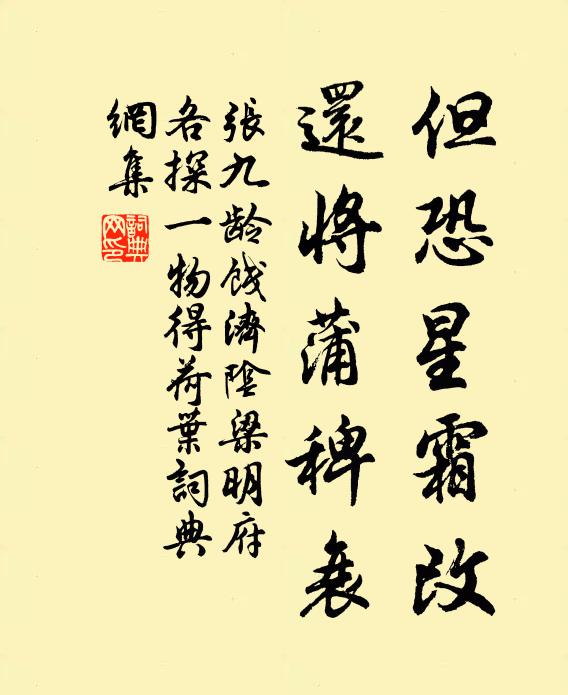 但恐星霜改
還將蒲稗衰
張九齡餞濟陰梁明府
各探一物得荷葉詞典
網集
詞典網印